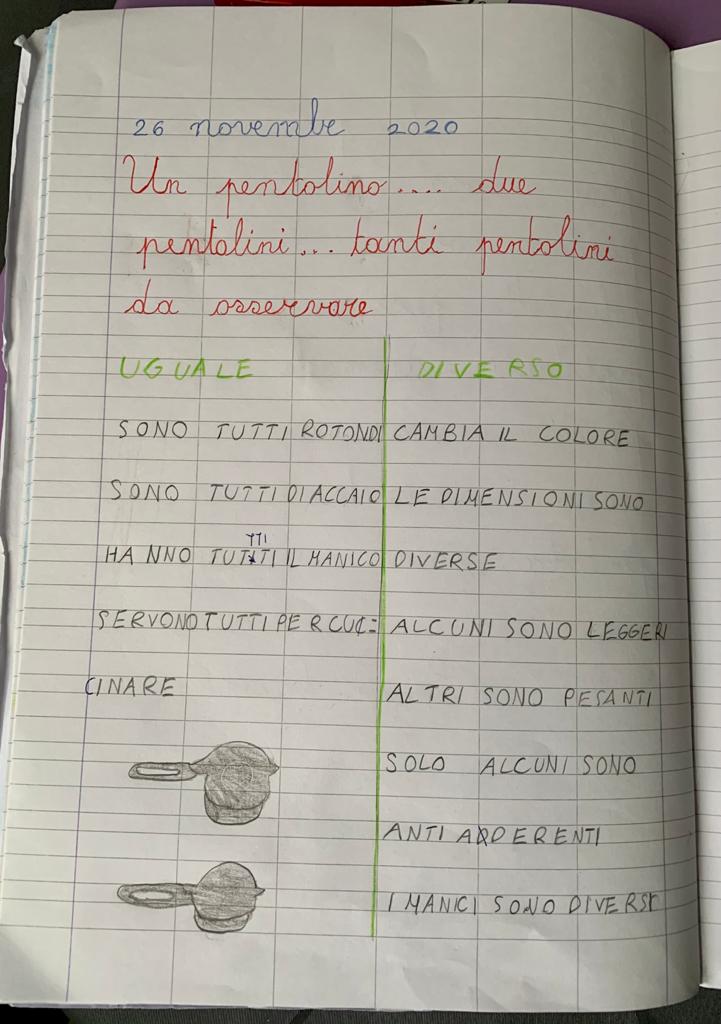 26 novembe 2020
Un pentolino.... due
pentolini... tanti pentolini
da osservare
UGUALE
SONO TUTTI ROTONDI
SONO TUTTI DI ACCAIO
HANNO TUTTI IL MANICO
SERVONO TUTTI PER CUC=
CINARE
DIVERSO
CAMBIA IL COLORE
LE DIMENSIONI SONO
DIVERSE
ALCUNI SONO LEGGERI
ALTRI SONO PESANTI
SOLO ALCUNI SONO
ANTI ADERENTI
I MANICI SONO DIVERSI